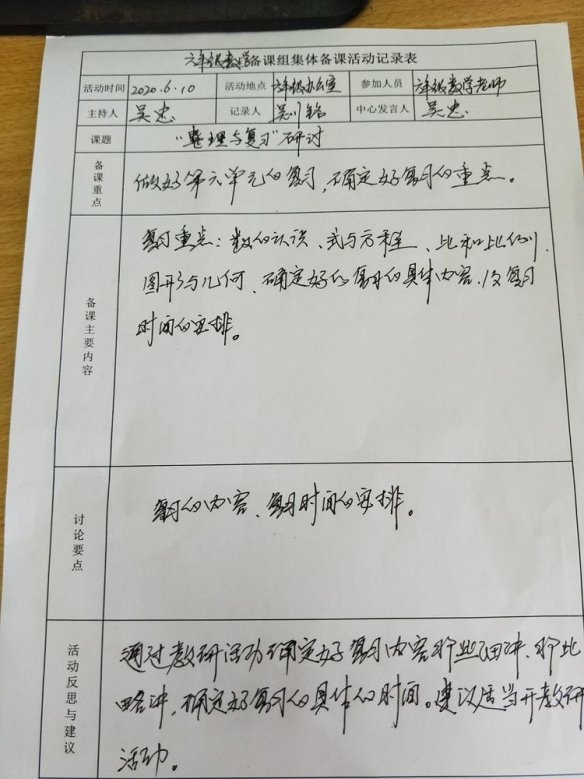 六年级数学备课组集体备课活动记录表
活动时间 2020.6.10 活动地点 六年级办公室 参加人员 六年级数学老师
主持人 吴忠 记录人 吴川铭 中心发言人 吴忠
课题 “整理与复习”研讨
备课重点 做好第六单元的复习,确定好复习的重点。
备课主要内容
复习重点:数的认识、式与方程、比和比例、
图形与几何、确定好的复习的具体内容,及复习
时间的安排。
讨论要点 复习的内容、复习时间的安排。
活动反思与建议
通过教研活动确定好复习内容那些细讲、那些
略讲,确定好复习的具体的时间。建议适当开教研
活动。